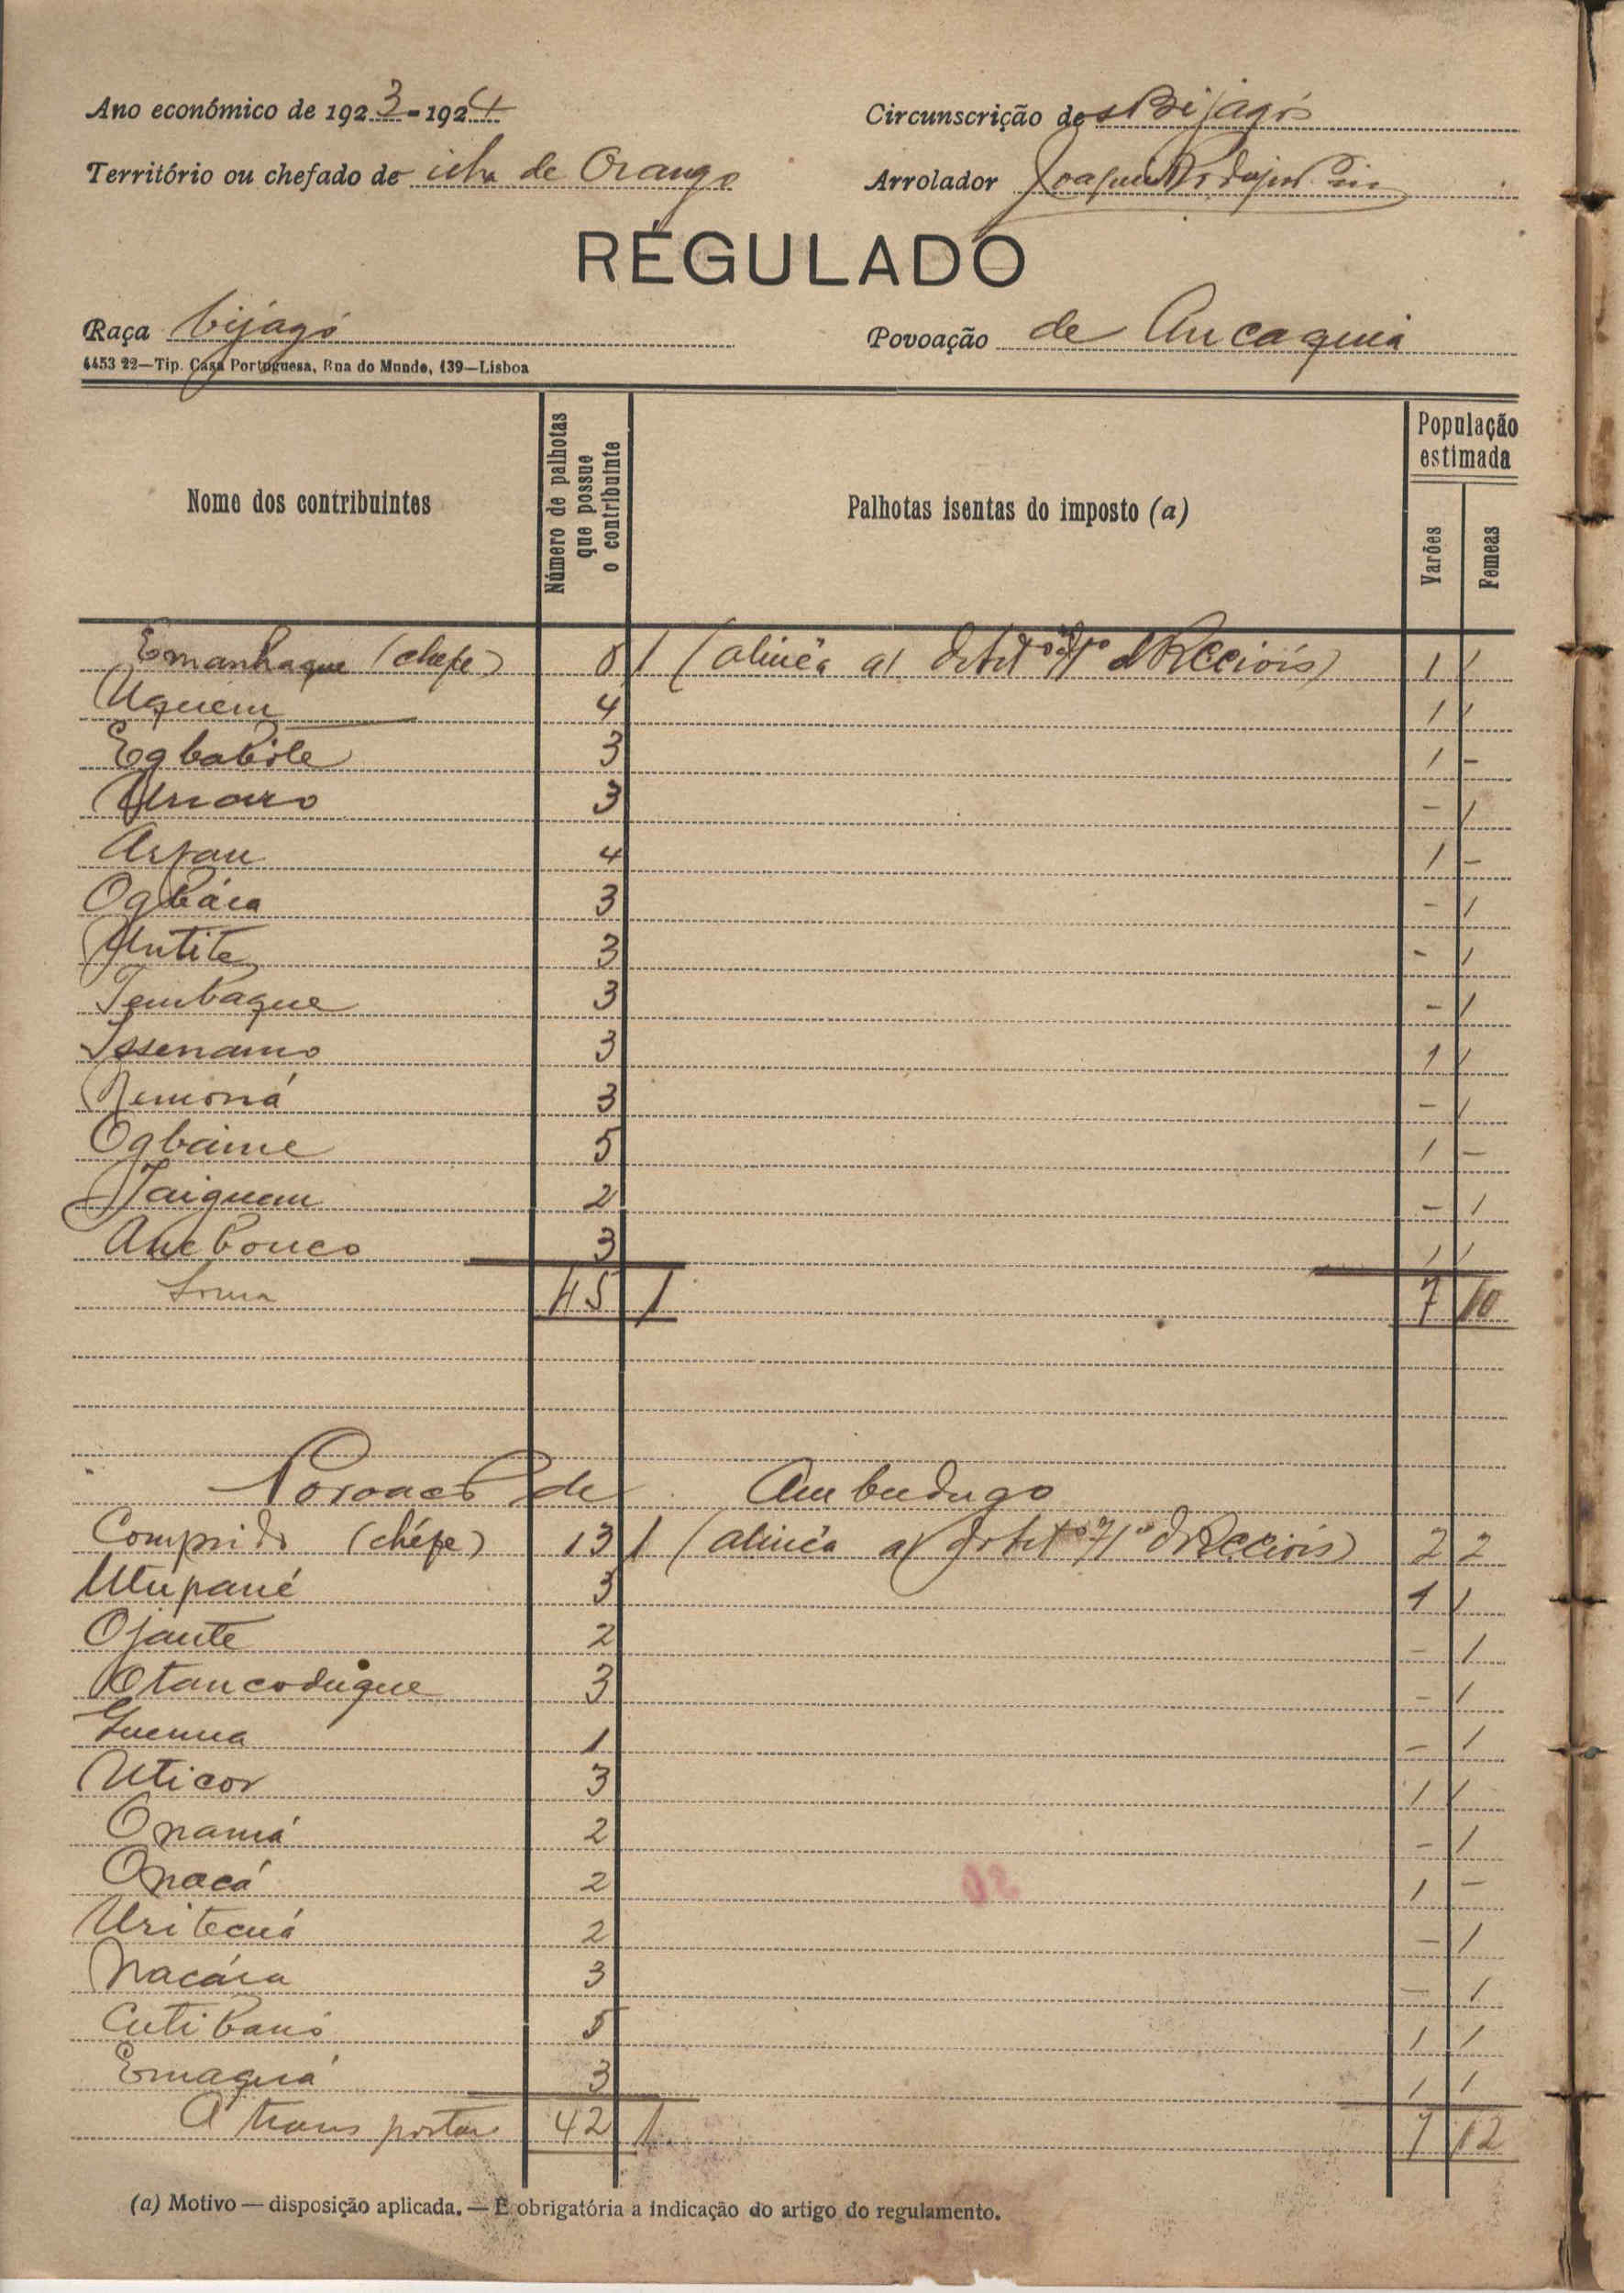 Ano económico de 1923-1924
Circunscrição dos Bijagós
Território ou chefado de ilha de Orango
Arrolador Joaquim
REGULADO
Raça bijagó
Povoação de Ancaquiá
4453 22—Tip. Casa Portuguesa, Rua do Mundo, 139—Lisboa
Nome dos contribuintes
Número de palhotas que possue o contribuinte
Palhotas isentas do imposto (a)
População estimada
Varões
Femeas
Emanhaque (chefe) 1 (alinêa a) 1 1
Uquem 4 1 1
Egbabóle 3 1 -
3 - 1
4 1 -
Ogbáca 3 - 1
Untite 3 - 1
Tembaque 3 - 1
Issenamo 3 1 1
3 - 1
Ogbaime 5 1 -
2 - 1
3 1 1
Soma 45 1 7 10
Povoação de Ambudugo
Comprido (chéfe) 13 1 (alinêa a) 2 2
Utupané 3 1 1
Ojante 2 - 1
Otancodugue 3 - 1
1 - 1
Uticor 3 1 1
Onamá 2 - 1
Onacá 2 1 -
Uritecuá 2 - 1
Nacáca 3 - 1
Cutibanó 5 1 1
Emaquá 3 1 1
A transportar 42 1 7 12
(a) Motivo — disposição aplicada. — É obrigatória a indicação do artigo do regulamento.